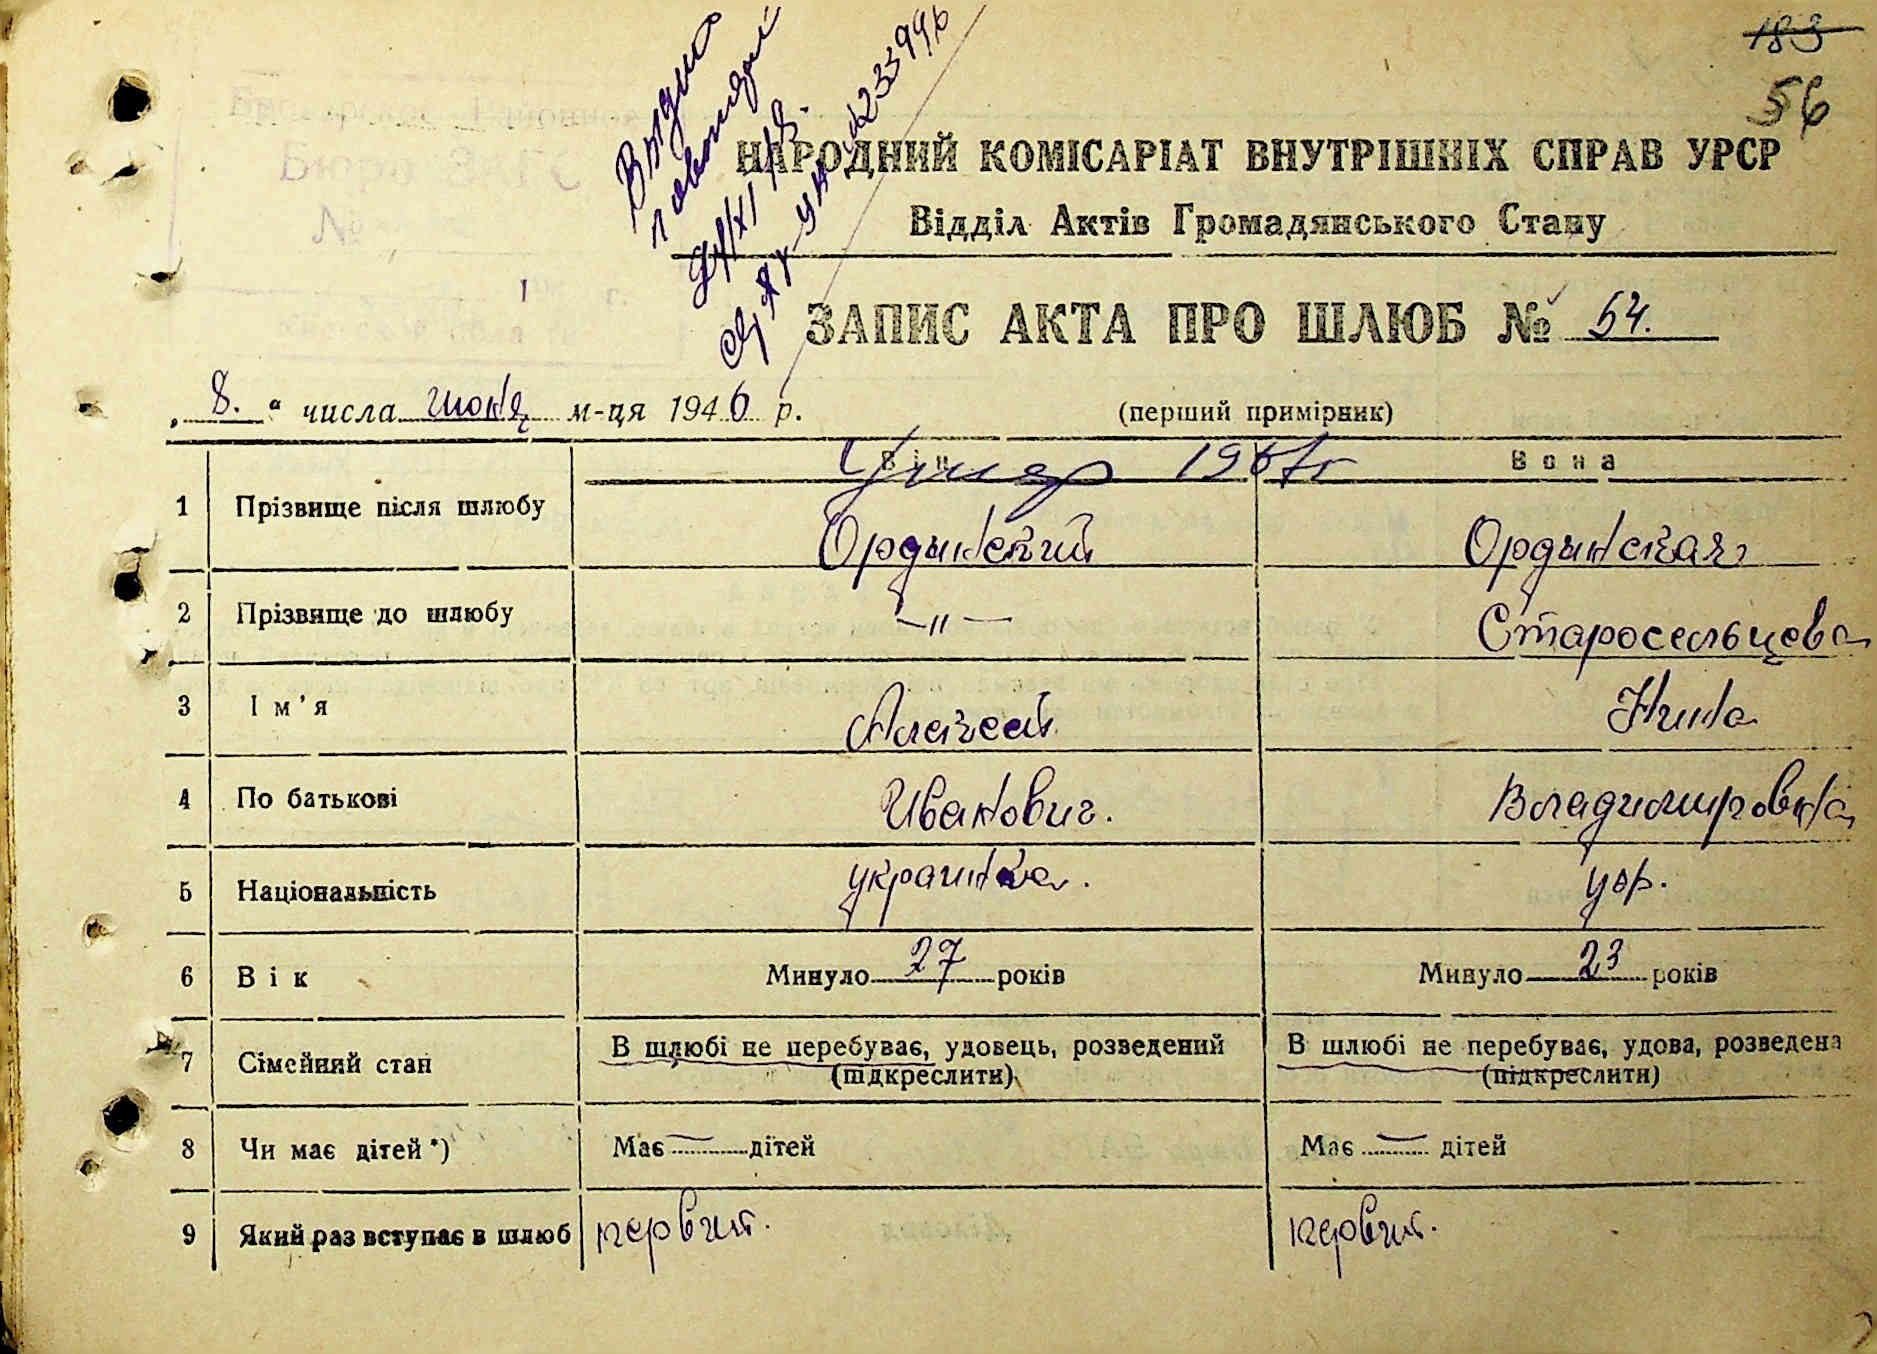 183
56
Выдано
повторн
НАРОДНИЙ КОМІСАРІАТ ВНУТРІШНІХ СПРАВ УРСР
Відділ Актів Громадянського Стану
ЗАПИС АКТА ПРО ШЛЮБ № 54.
„ 8. “ числа июня м-ця 1946 р. (перший примірник)
Він Вона
Умер 1967г
1 Прізвище після шлюбу Ордынский Ордынская
2 Прізвище до шлюбу —„— Старосельцева
3 Ім'я Алексей Нина
4 По батькові Иванович. Владимировна
5 Національність украинка. укр.
6 Вік Минуло 27 років Минуло 23 років
7 Сімейний стан В шлюбі не перебуває, удовець, розведений В шлюбі не перебуває, удова, розведена
(підкреслити) (підкреслити)
8 Чи має дітей *) Має — дітей Має — дітей
9 Який раз вступає в шлюб первый. первый.